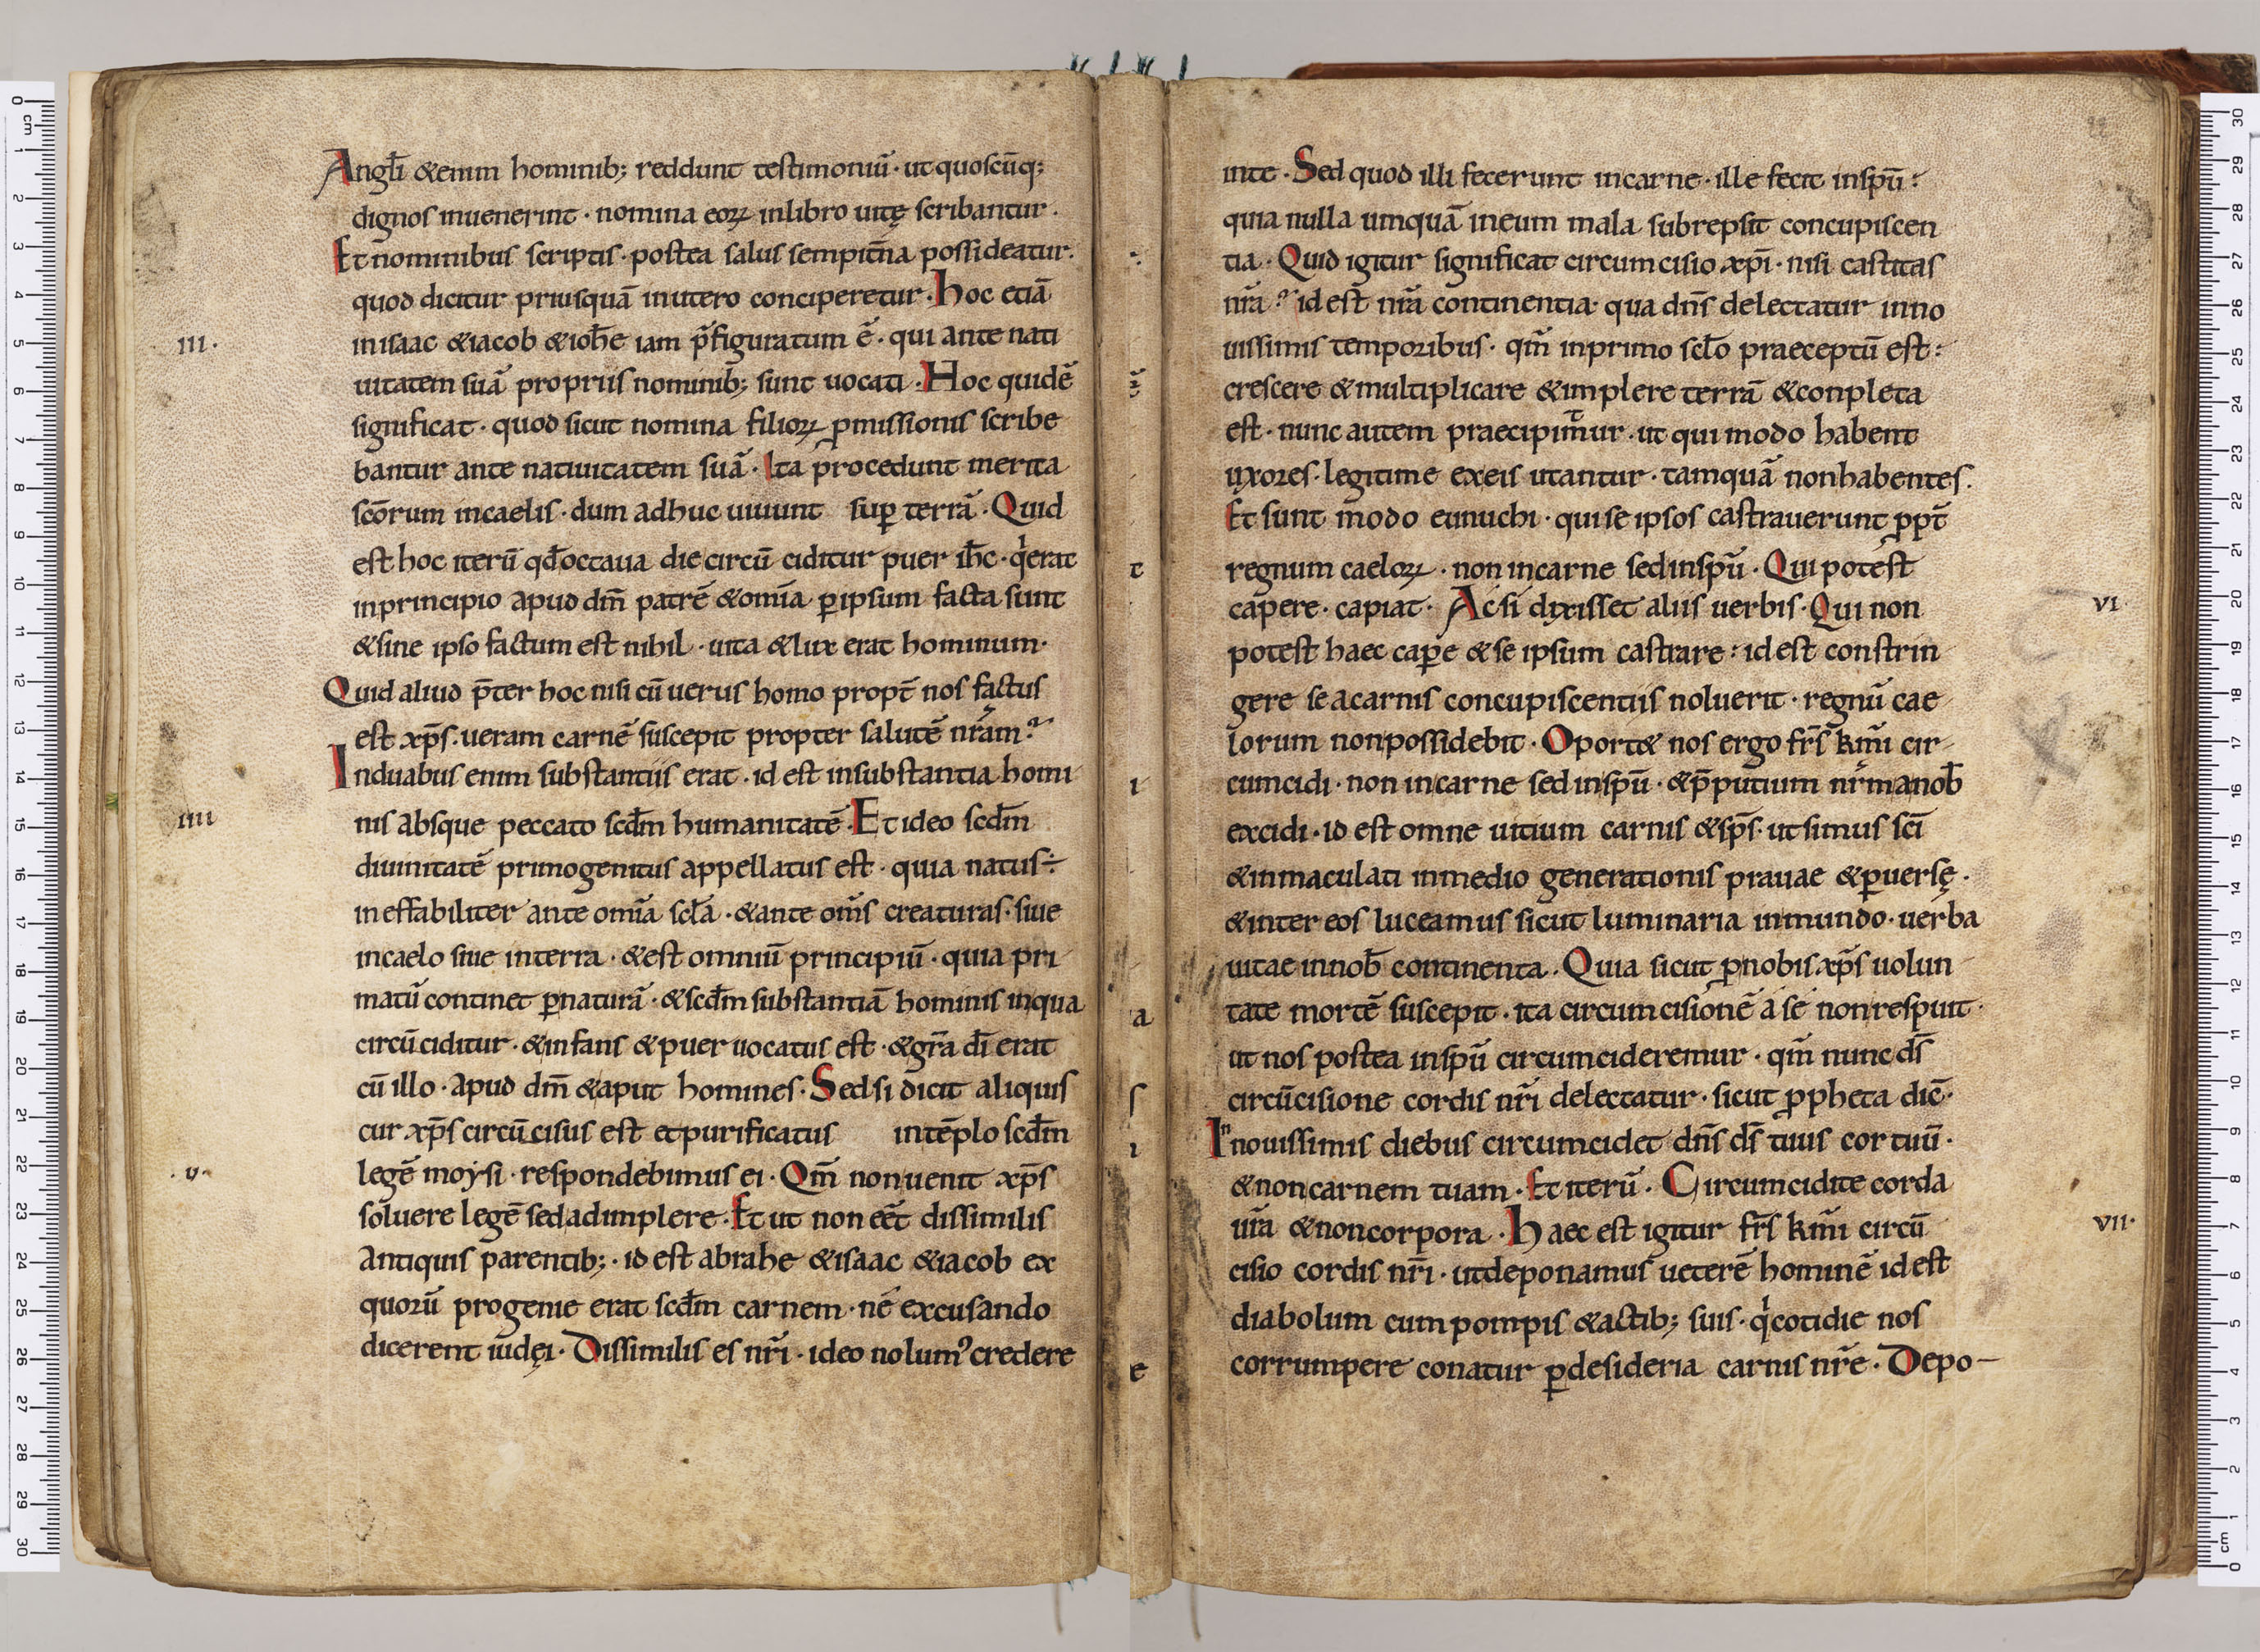 Angl̄i &enim hominib; reddunt testimoniū · ut quoscūq;
dignos inuenerint · nomina eoꝝ inlibro uitę scribantur.
Et nominibus scriptis · postea salus sempit̄na possideatur.
quod dicitur priusquā inutero conciperetur. Hoc etiā
III. inisaac &iacob &ioh̄e iam p̄figuratum ē · qui ante nati
uitatem suā propriis nominib; sunt uocati. Hoc quidē
significat · quod sicut nomina filioꝝ ꝓmissionis scribe
bantur ante natiuitatem suā. Ita procedunt merita
sc̄orum incaelis · dum adhuc uiuunt suꝑ terrā. Quid
est hoc iterū qd̄ octaua die circū ciditur puer ih̄c · qͥ erat
inprincipio apud dm̄ patrē &omīa ꝑipsum facta sunt
&sine ipso factum est nihil · uita &lux erat hominum.
Quid aliud p̄ter hoc nisi cū uerus homo propt̄ nos factus
est xp̄s. ueram carnē suscepit propter salutē nr̄am?
Induabus enim substantiis erat · id est insubstantia homi
IIII nis absque peccato scd̄m humanitatē. Et ideo scd̄m
diuinitatē primogenitus appellatus est · quia natus÷
ineffabiliter ante omīa scl̄a · &ante om̄s creaturas · siue
incaelo siue interra · &est omniū principiū · quia pri
matū continet ꝑnaturā · &scd̄m substantiā hominis inqua
circū ciditur · &infans &puer uocatus est · &gr̄a dī erat
cū illo · apud dm̄ &aput homines. Sed si dicit aliquis
cur xp̄s circū cisus est etpurificatus intēplo scd̄m
.v. legē moysi · respondebimus ei · Qm̄ nonuenit xp̄s
soluere legē sedadimplere. Et ut non eēt dissimilis
antiquis parentib; · id est abrahe &isaac &iacob ex
quorū progenie erat scd̄m carnem · ne excusando
dicerent iudęi. Dissimilis es nr̄i · ideo nolumꝰ credere
inte. Sed quod illi fecerunt incarne · ille fecit inspū:
quia nulla umquā ineum mala subrepsit concupiscen
tia. Quid igitur significat circumcisio xp̄i · nisi castitas
nr̄a? id est nr̄a continentia qua dn̄s delectatur inno
uissimis temporibus · qm̄ inprimo scl̄o praeceptū est:
crescere &multiplicare &implere terrā &conpleta
est · nunc autem praecipimͭur · ut qui modo habent
uxores · legitime exeis utantur · tamquā nonhabentes.
Et sunt modo eunuchi · qui se ipsos castrauerunt ꝓpt̄
regnum caeloꝝ · non incarne sedinspū. Qui potest
VI. capere · capiat. Acsi dixisset aliis uerbis. Qui non
potest haec caꝑe &se ipsum castrare: id est constrin
gere se acarnis concupiscentiis noluerit · regnū cae
lorum nonpossidebit. Oport& nos ergo fr̄s km̄i cir
cumcidi · non incarne sedinspū · &p̄putium nr̄m anob̄
excidi · id est omne uitium carnis &sp̄s · ut simus sc̄i
&inmaculati inmedio generationis prauae &ꝑuersę.
&inter eos luceamus sicut luminaria inmundo · uerba
uitae innob̄ continentia. Quia sicut ꝓnobis xp̄s uolun
tate mortē suscepit · ita circumcisionē a se nonrespuit.
ut nos postea inspū circumcideremur · qm̄ nunc ds̄
circūcisione cordis nr̄i delectatur · sicut ꝓpheta dic̄.
Innouissimis diebus circumcidet dn̄s ds̄ tuus cor tuū.
&noncarnem tuam. Et iterū. Circumcidite corda
VII. ur̄a &noncorpora. Haec est igitur fr̄s km̄i circū
cisio cordis nr̄i · utdeponamus ueterē hominē id est
diabolum cumpompis &actib; suis · qͥ cotidie nos
corrumpere conatur ꝑdesideria carnis nr̄e. Depo-
t
i
a
s
i
e